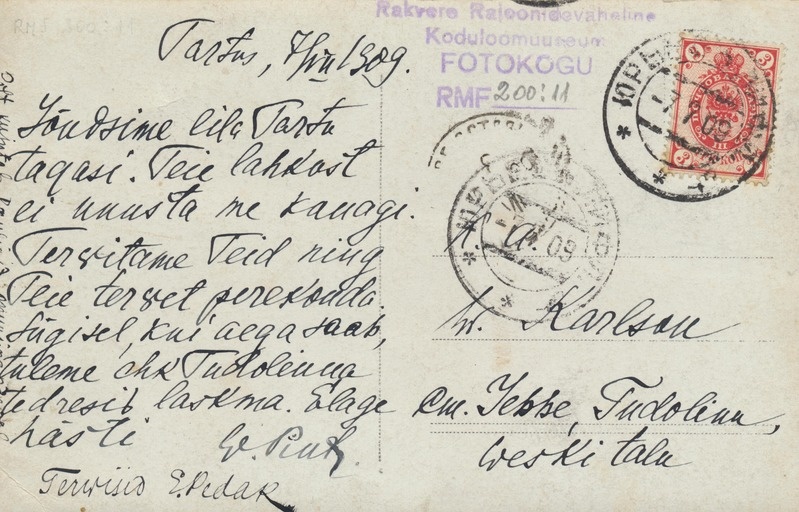 Rakvere Rajoonidevaheline
Koduloomuuseum
FOTOKOGU
RMF 200:11
Tartus, 7/VII 1909.
Jõudsime eila Tartu
tagasi. Teie lahkust
ei unusta me kauagi.
Terwitame Teid ning
Teie terwet perekonda.
Sügisel, kui aega saab,
tuleme ehk Tudolinna
tedresid laskma. Elage
hästi
Terwisid E. Pedak
ЮРЬЕВЪ
09
ЮРЬЕВЪ
09
3
3
3
3
hr. Karlson
Em. Jebbe, Tudolinn,
Weski talu